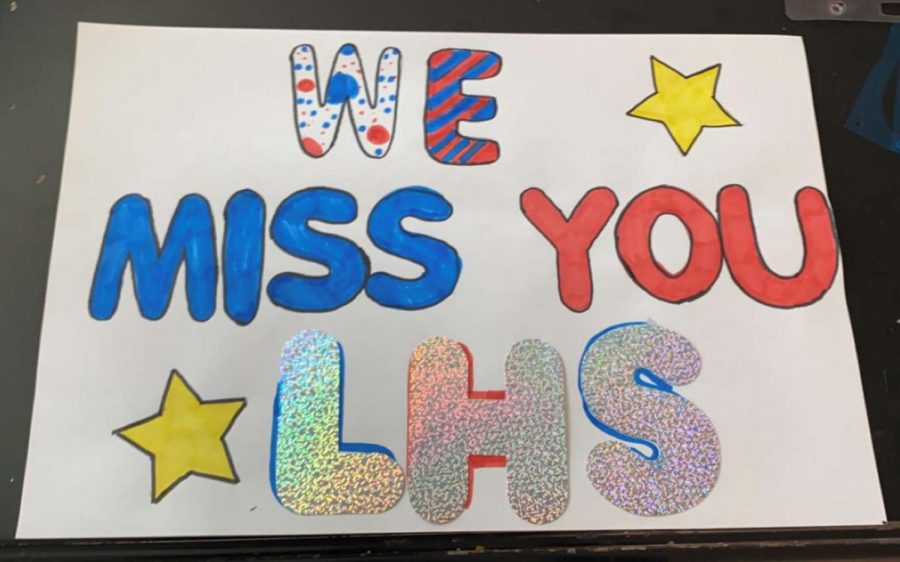 WE
MISS YOU
LHS